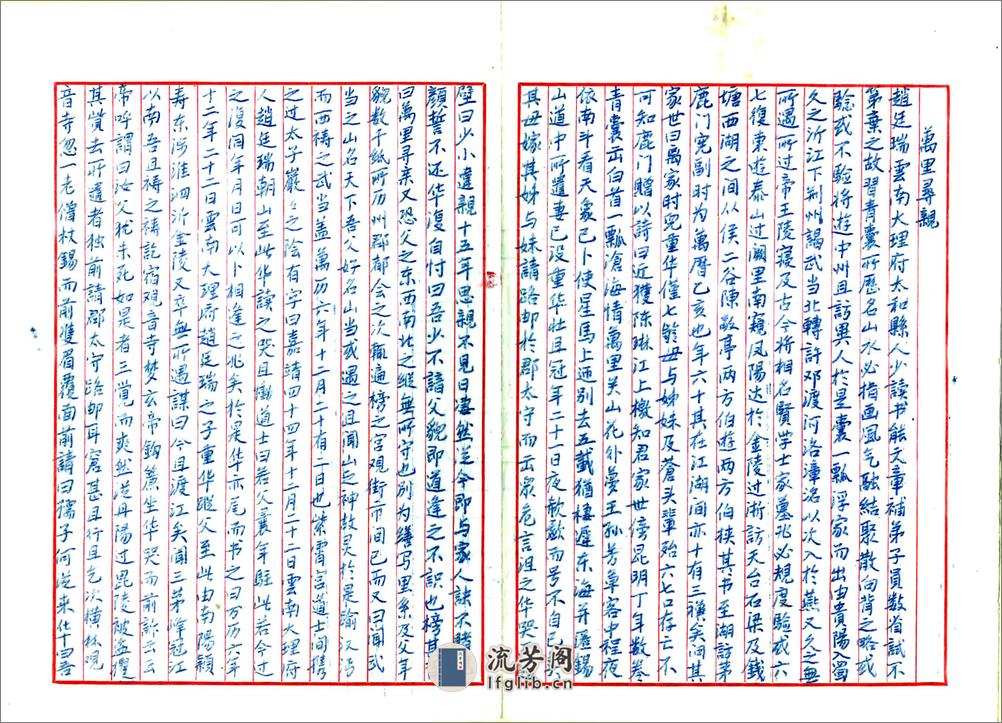 萬里尋親
趙廷瑞雲南大理府太和縣人少读书能文章補弟子員数省試不
第棄之故習青囊所歷名山水必指画風气融結聚散向背之略或
驗或不驗将遊中州且訪異人於是囊一瓢浮家而出由貴陽入蜀
久之沂江下荆州謁武当北轉許邓渡河洛漳滏以次入於燕又久之無
所遇所过帝王陵寝及古今将相名賢学士家墓兆必規度驗或六
七復東遊泰山过阙里南窺凤陽达於金陵过浙訪天台石梁及銭
塘西湖之间从侯二谷陳敬亭两方伯遊两方伯挟其书至湖訪茅
鹿门宪副时为萬曆乙亥也年六十其在江湖间亦十有三禩矣闻其
家世曰离家时児童华僅七龄母与姊妹及蒼头輩殆六七口存亡不
可知鹿门贈以詩曰近獲陈琳江上檄知君家世傍昆明丁年数卷
青囊出白首一瓢滄海情萬里关山花外夢王孙芳草客中程夜
依南斗看天象已卜使星馬上迎别去五載猶棲遲东海并匯錫
山道中所遺妻已没重华壮且冠年二十一日夜欷歔而号不自已
其母嫁其姊与妹請路邮於郡太守而出衆危言沮之华哭
壁曰少小違親十五年思親不見日凄然从今即与家人訣不睹
顔誓不还华復自忖曰吾少不諳父貌即道逢之不识也榜其
曰萬里寻亲又恐父之东西南北之縱無所守也别为缮写里系及父年
貌数千紙所历州郡都会之次輒遍榜之宫观街市间已而又曰闻武
当之山名天下吾父好名山当或遇之且闻山之神故灵於是踰汉沔
而西祷之武当盖萬历六年十二月二十有一日也紫霄宫道士间携
之过太子巖巖之陰有字曰嘉靖四十四年十二月二十二日雲南大理府
人趙廷瑞朝山至此华讀之哭且慟道士曰若父曩年駐此若今过
之復同年月日可以卜相逢之兆矣於是华亦尾而书之曰万历六年
十二年二十二日雲南大理府趙廷瑞之子重华踪父至此由南陽颍
寿东涉淮泗沂金陵又卒無所遇謀曰今且渡江矣闻三茅峰冠江
以南吾且祷之祷訖宿观音寺梦玄帝鈎簾坐华哭而前訴云
帝呼謂曰汝父犹未死如是者三覚而爽然从丹陽过毘陵被盗攫
其貲去所遺者独前請郡太守路邮耳窘甚且行且乞次横林观
音寺忽一老僧杖錫而前雙眉覆面前請曰孺子何从来什十吾
流芳阁
lfglib.cn